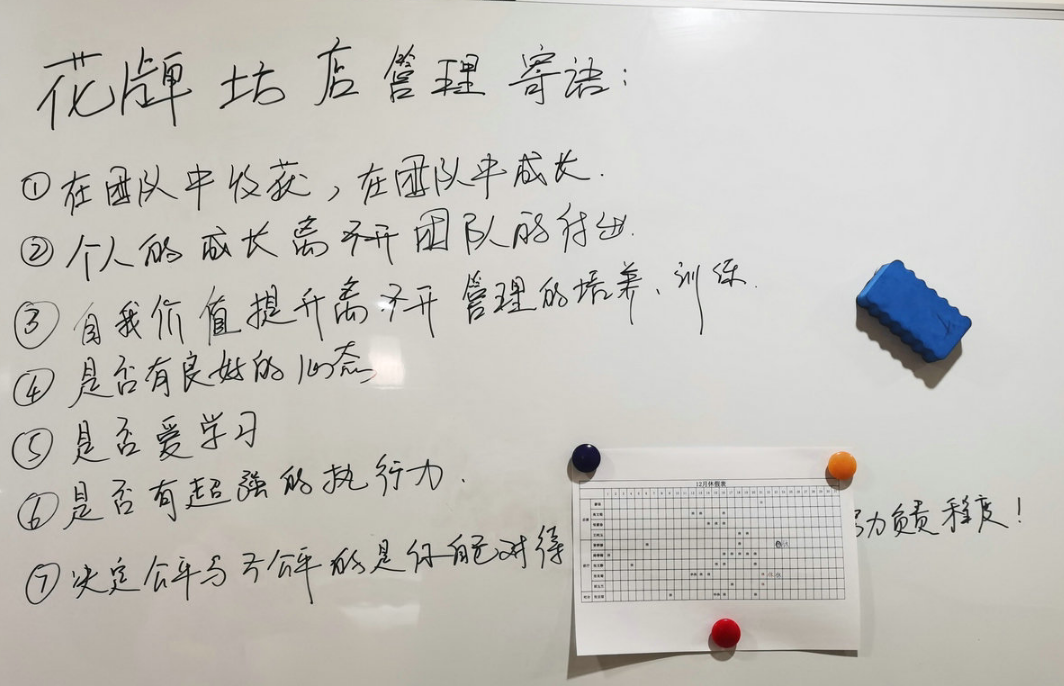 花牌坊店管理寄语：
①在团队中收获，在团队中成长.
②个人的成长离不开团队的付出.
③自我价值提升离不开管理的培养、训练.
④是否有良好的心态
⑤是否爱学习
⑥是否有超强的执行力.
⑦决定公平与不公平的是你自己对待
力负责程度！
12月休假表